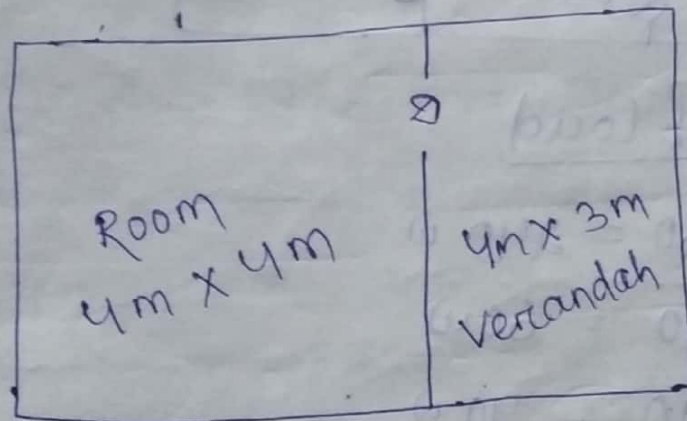 D
Room
4m x 4m
4m x 3m
verandah